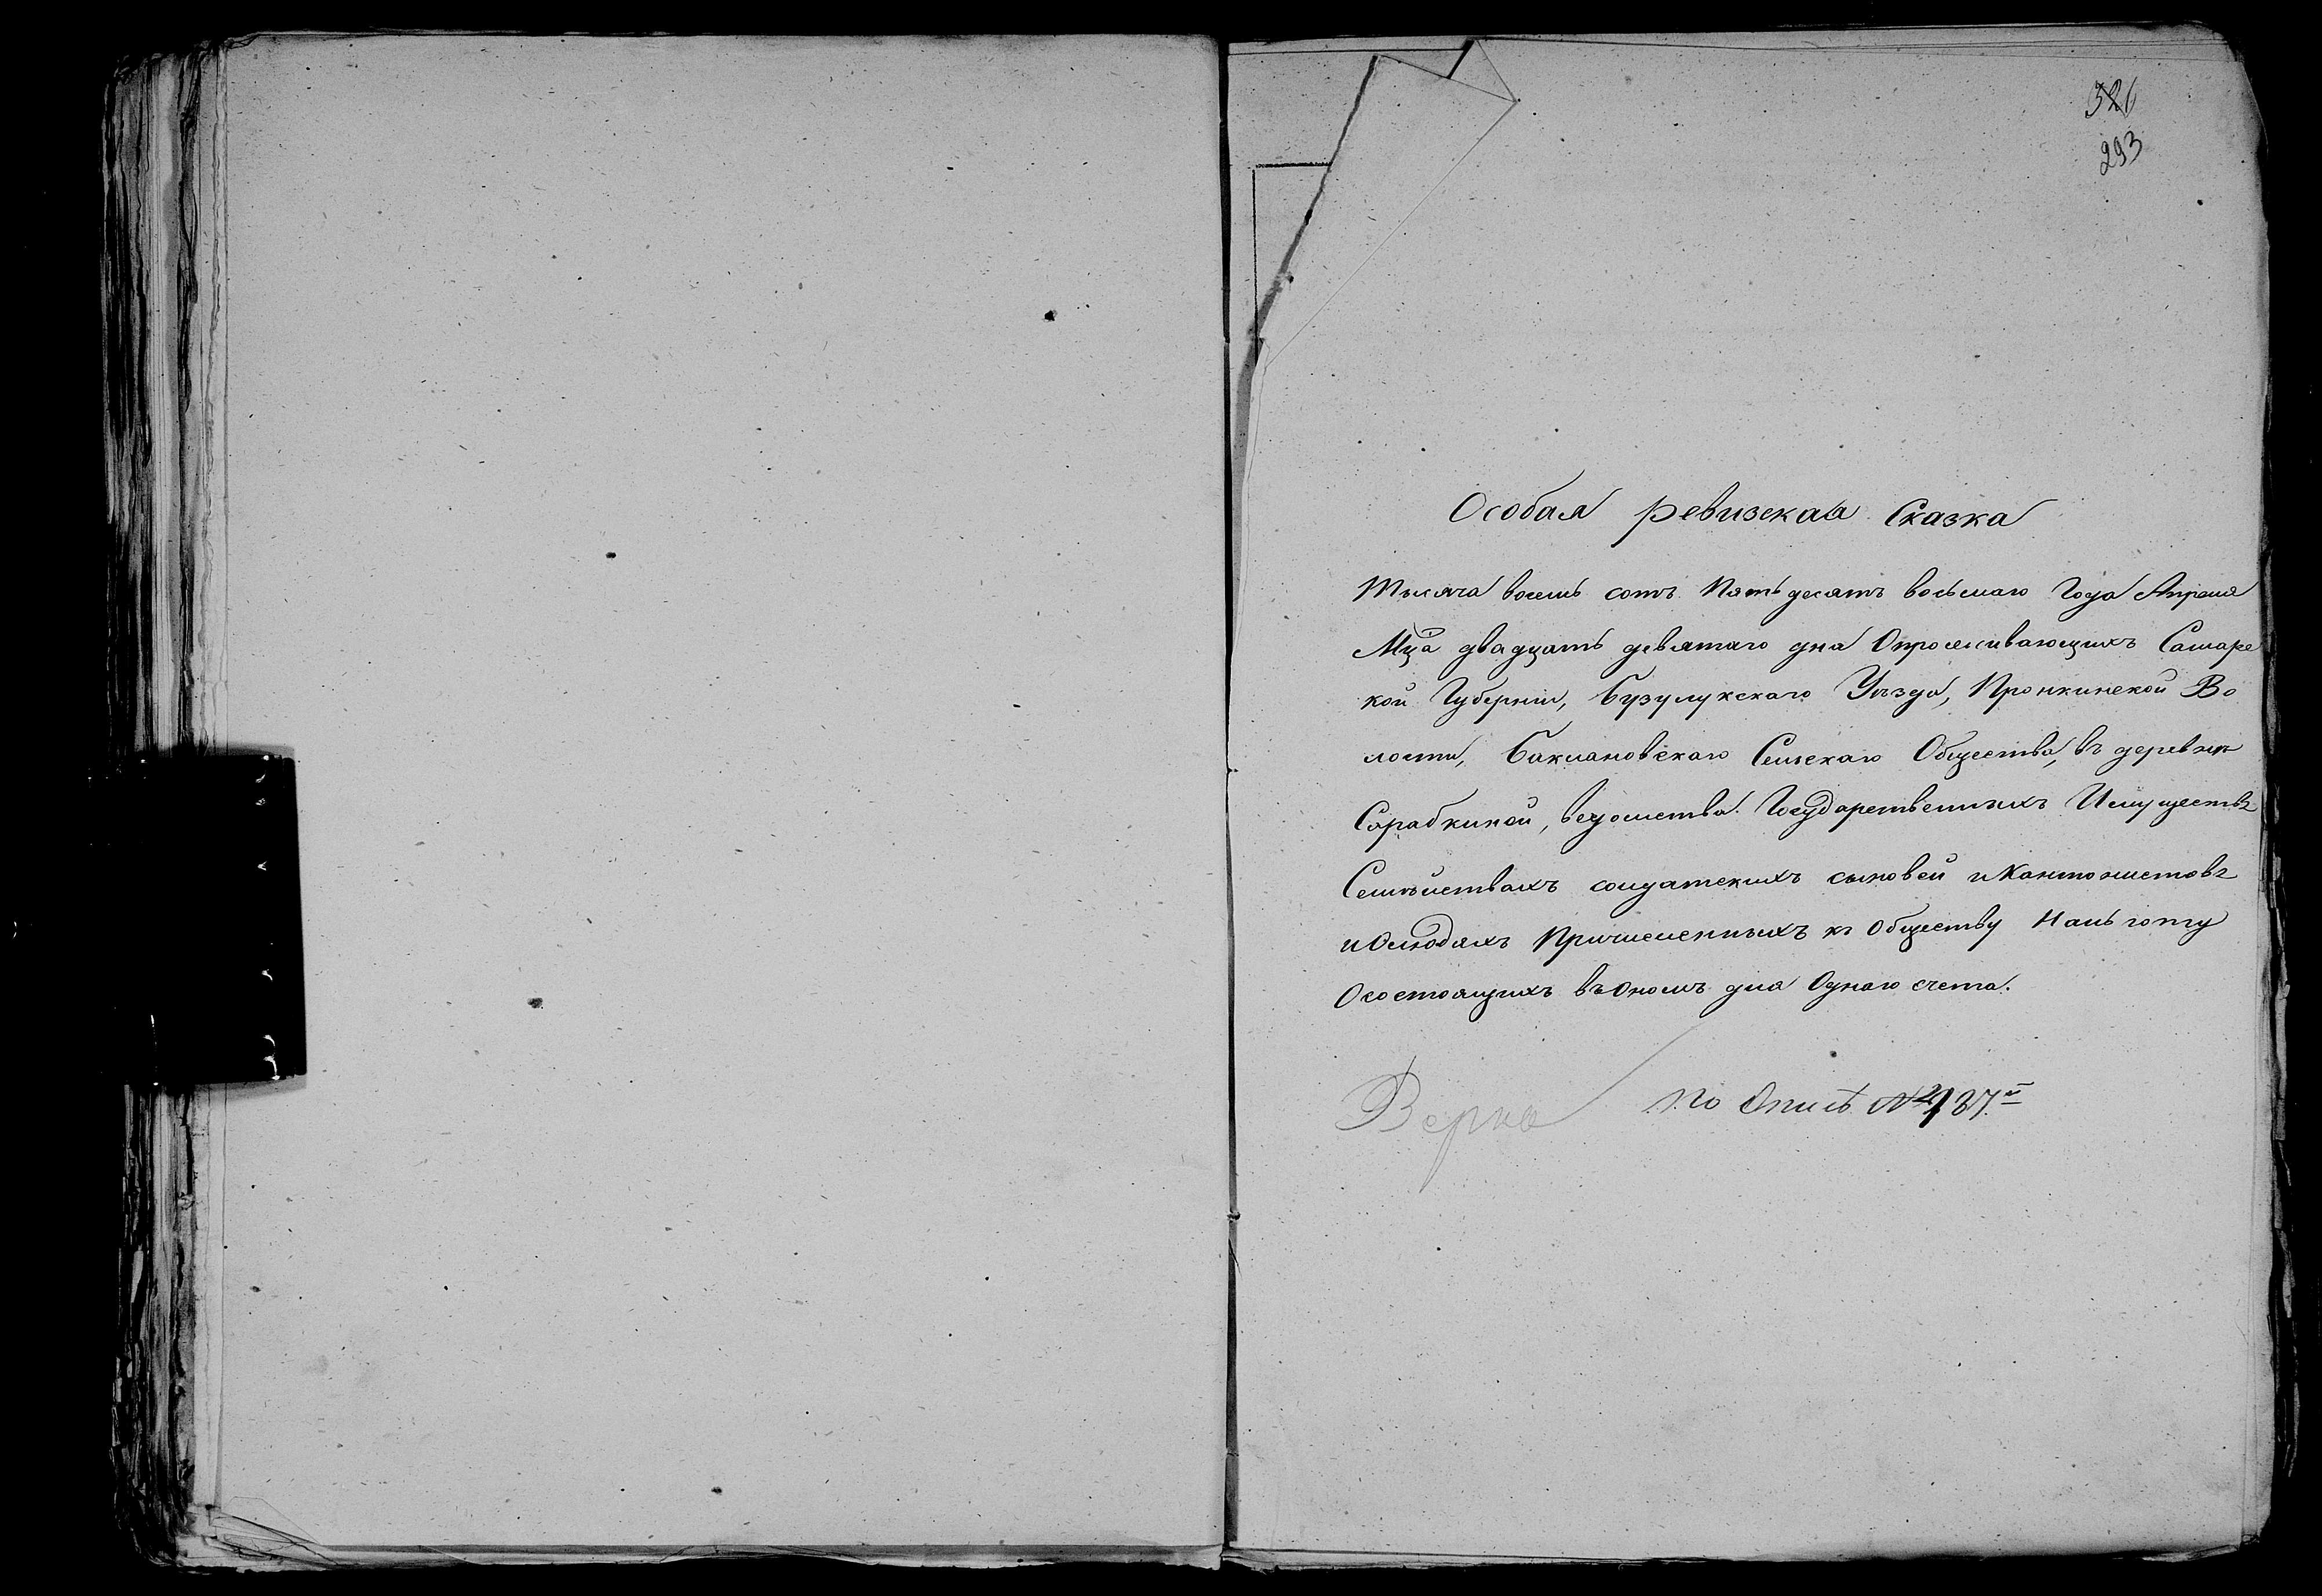 326
293
Особая ревизская Сказка
Тысяча восемь сотъ Пятьдесятъ восьмаго Года Апреля
Мца двадцать девятаго дня Опроживающихъ Самарс
кой Губерніи, Бузулукскаго Уѣзда, Пронкинской Во
лости, Баклановскаго Сельскаго Общества, въ деревнѣ
Сарабкиной, ведомства Государственныхъ Имуществъ
Семѣйствахъ солдатскихъ сыновей и Кантонистовъ
и Олюдяхъ Причисленныхъ къ Обществу
Осостоящихъ въ Ономъ для Однаго счета.
Верно
По Описѣ № 137й